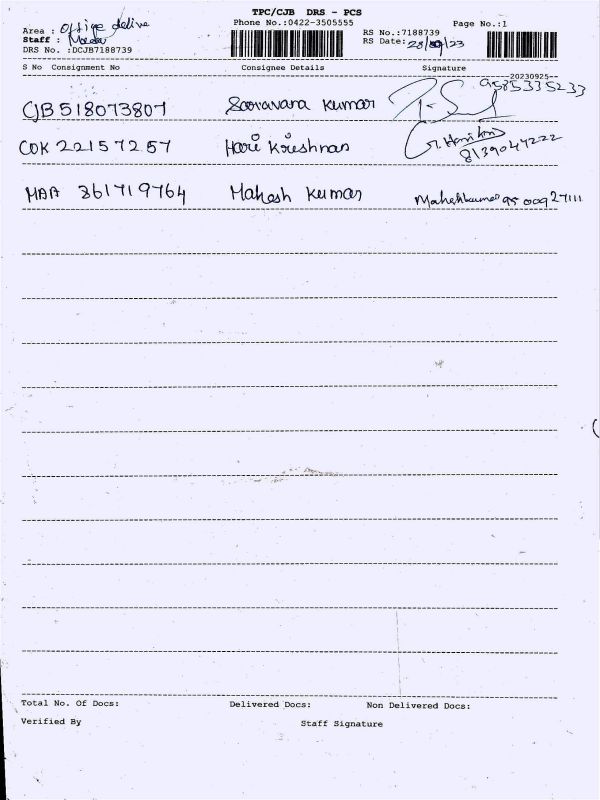 TPC/CJB DRS - PCS
Phone No.:0422-3505555 Page No.:1
Area : Office delive
RS No.:7188739
Staff :
RS Date: 23/23
DRS No. :DCJB7188739
S No Consignment No Consignee Details Signature
--20230925--
CJB 518073807 Saravana Kumar 9585335233
COK 22157257 Hari Krishnan 8139047222
MAA 861719764 Mahesh Kumar Maheshkumar 95 00927111
Total No. Of Docs: Delivered Docs: Non Delivered Docs:
Verified By Staff Signature